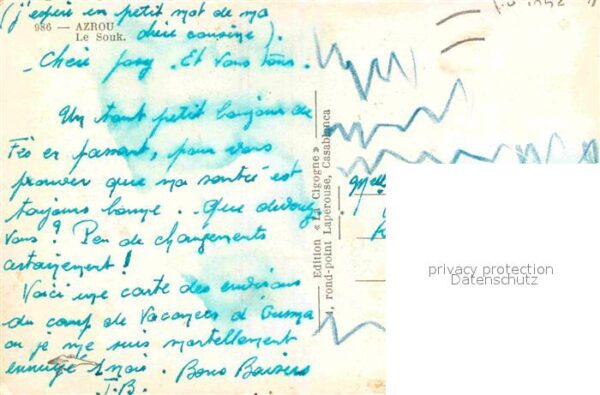 (j'espère un petit mot de ma
chère cousine).
986 — AZROU
Le Souk.
— Chère Josy. Et Vous tous.
Un tout petit bonjour de
Fès en passant, pour vous
prouver que ma santé est
toujours bonne.. Que
Vous? Peu de changements
certainement!
Voici une carte des environs
du camp de Vacances d'
où je me suis mortellement
ennuyé 1 mois. Bons Baisers
J.B.
Edition « La Cigogne »
rond-point Lapérouse, Casablanca
Melle
privacy protection
Datenschutz